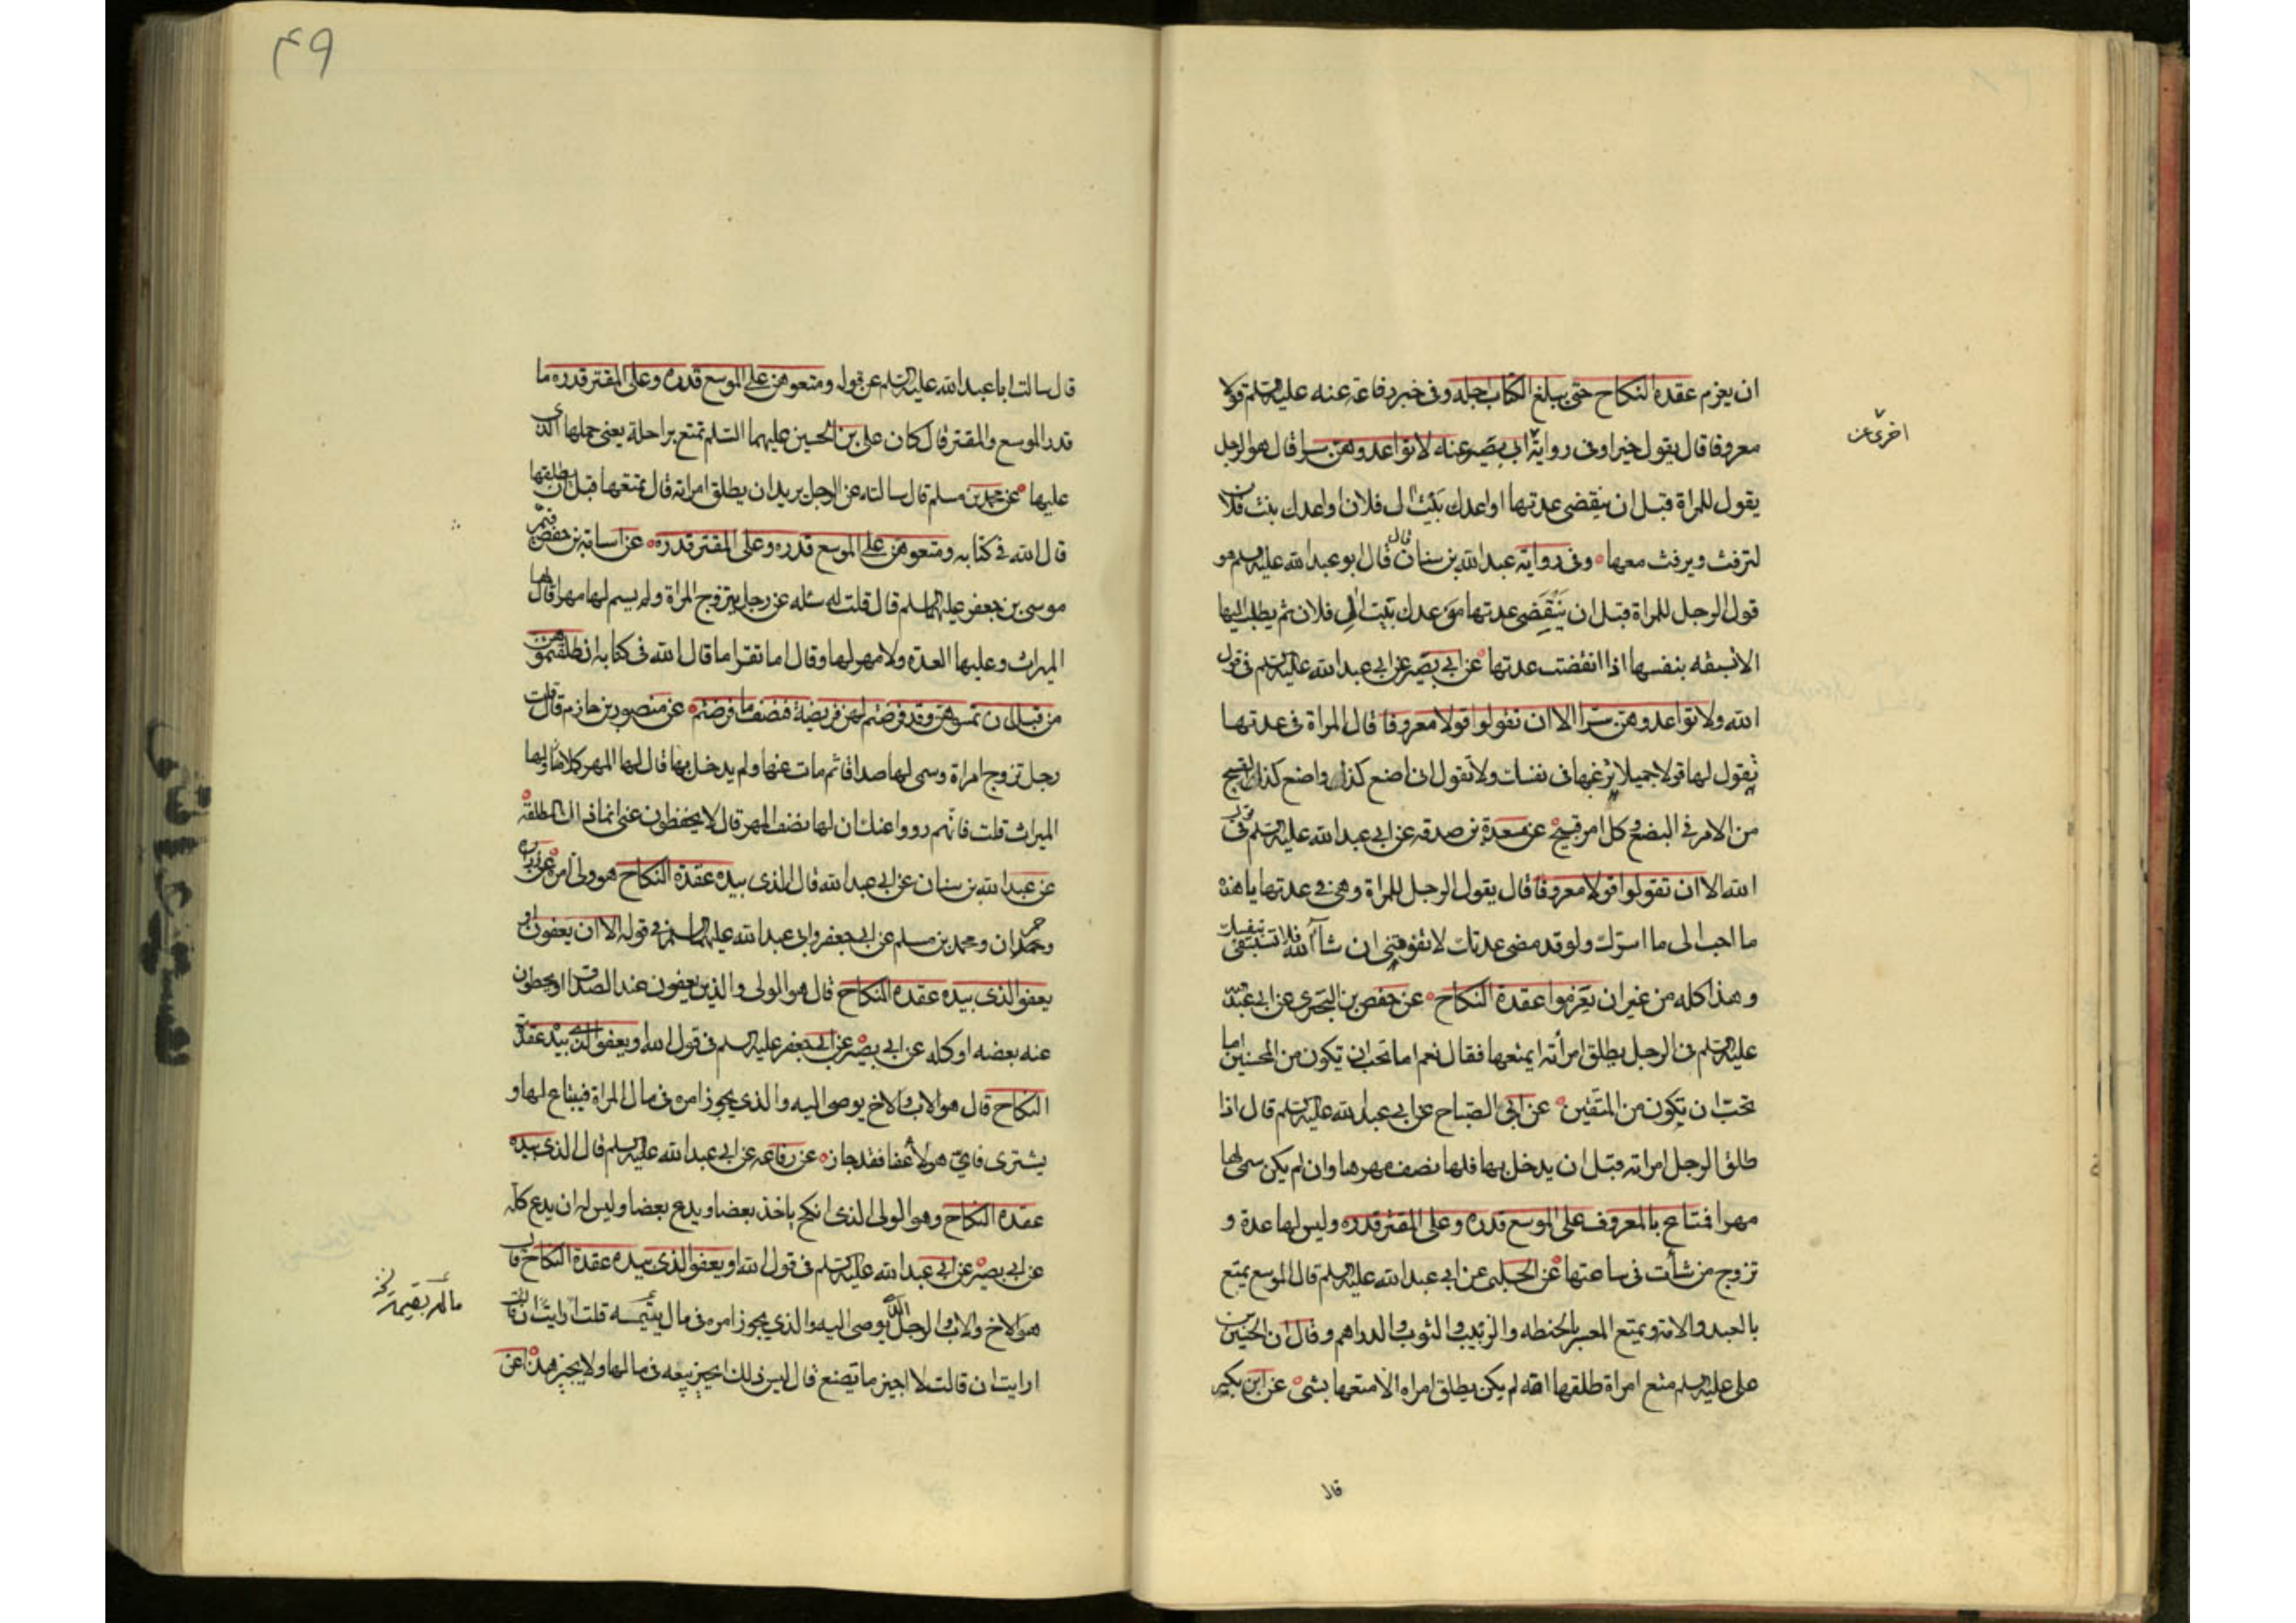 ان يعزم عقدة النكاح حتى يبلغ الكتاب اجله وفى خبر رفاعة عنه عليه السلم قولا
معروفا قال يقول خيرا وفى رواية ابى بصير عنه لا تواعدوهن سرا قال هو الرجل
اخرى عن
يقول للمراة قبل ان ينقضى عدتها اواعدك بيت ال فلان اواعدك بيت فلان
لترفث ويرفث معها وفى رواية عبد الله بن سنان قال قال ابو عبد الله عليه السلم هو
قول الرجل للمراة قبل ان ينقضى عدتها موعدك بيت ال فلان ثم يطلب اليها
الا تسبقه بنفسها اذا انقضت عدتها عن ابى بصير عن ابى عبد الله عليه السلم فى قول
الله ولا تواعدوهن سرا الا ان تقولوا قولا معروفا قال المراة فى عدتها
تقول لها قولا جميلا ترغبها فى نفسك ولا تقول انى اصنع كذا واصنع كذا القبيح
من الامر فى البضع وكل امر قبيح عن مسعدة بن صدقه عن ابى عبد الله عليه السلم فى قول
الله الا ان تقولوا قولا معروفا قال يقول الرجل للمراة وهى فى عدتها يا هذه
ما احب الى ما اسرك ولو قد مضى عدتك لا تفوتينى ان شآ الله فلا تسبقى بنفسك
وهذا كله من غير ان يعزموا عقدة النكاح عن حفص بن البخترى عن ابى عبد الله
عليه السلم فى الرجل يطلق امرأته ايمتعها فقال نعم اما تحب ان تكون من المحسنين اما
تحب ان تكون من المتقين عن ابى الصباح عن ابى عبد الله عليه السلم قال اذا
طلق الرجل امراته قبل ان يدخل بها فلها نصف مهرها وان لم يكن سمى لها
مهرا فمتاع بالمعروف على الموسع قدره وعلى المقتر قدره وليس لها عدة و
تزوج من شأت فى ساعتها عن الحلبى عن ابى عبد الله عليه السلم قال الموسع يمتع
بالعبد والامة ويمتع المعسر بالحنطه والزبيب والثوب والدراهم وقال ان الحسين بن
على عليه السلم متع امراة طلقها امة لم يكن يطلق امراه الا متعها بشى عن ابن بكير
قال
۴۹
قال سالت ابا عبد الله عليه السلم عن قوله ومتعوهن على الموسع قدره وعلى المقتر قدره ما
قدر الموسع والمقتر قال كان على بن الحسين عليهما السلم تمتع براحلة يعنى حملها الذى
عليها عن محمد بن مسلم قال سالته عن الرجل يريد ان يطلق امراته قال يمتعها قبل ان يطلقها
قال الله فى كتابه ومتعوهن على الموسع قدره وعلى المقتر قدره عن اسامة بن حفص قيم
موسى بن جعفر عليهما السلم قال قلت له سئله عن رجل يتزوج المراة ولم يسم لها مهرا قال لها
الميراث وعليها العدة ولا مهر لها وقال اما تقرا ما قال الله فى كتابه ان طلقتموهن
من قبل ان تمسوهن وقد فرضتم لهن فريضة فنصف ما فرضتم عن منصور بن حازم قال قلت
رجل تزوج امراة وسمى لها صداقا ثم مات عنها ولم يدخل بها قال لها المهر كملا ولها
الميراث قلت فانهم رووا عنك ان لها نصف المهر قال لا يحفظون عنى انما ذاك المطلقة
عن عبد الله بن سنان عن ابى عبد الله قال الذى بيده عقدة النكاح هو ولى امره عن زرارة
وحمران ومحمد بن مسلم عن ابى جعفر وابى عبد الله عليهما السلم فى قوله الا ان يعفون او
يعفو الذى بيده عقده النكاح قال هو الولى والذين يعفون عند الصداق او يحطون
عنه بعضه او كله عن ابى بصير عن ابى جعفر عليه السلم فى قول الله او يعفو الذى بيده عقدة
النكاح قال هو الاب والاخ يوصى اليه والذى يجوز امره فى مال المراة فيبتاع لها و
يشترى فاى هولاء عفا فقد جاز عن رفاعه عن ابى عبد الله عليه السلم قال الذى بيده
عقدة النكاح وهو الولى الذى انكح ياخذ بعضا ويدع بعضا وليس له ان يدع كله
عن ابى بصير عن ابى عبد الله عليه السلم فى قول الله او يعفو الذى بيده عقدة النكاح قال
هو الاخ والاب والرجل الذى يوصى اليه والذى يجوز امره فى مال يتيمه قلت ارايت ان قالت
ارايت ان قالت لا اجيز ما تصنع قال ليس ذلك لها اتجيز بيعه فى مالها ولا تجيز هذا عن